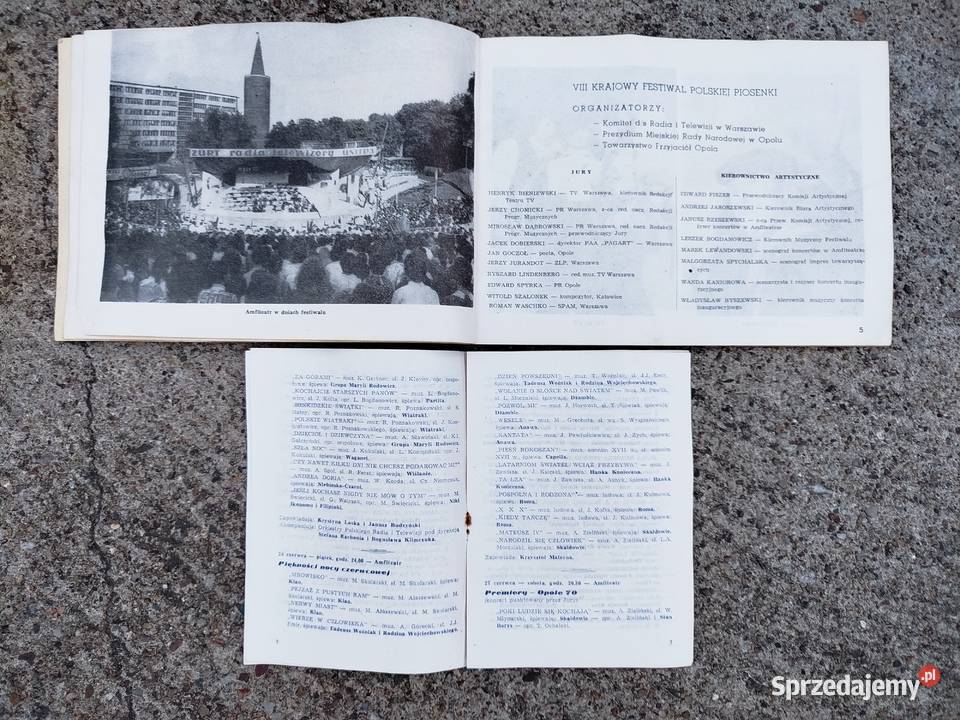 ZURT radia telewizory USŁUGI
Amfiteatr w dniach festiwalu
VIII KRAJOWY FESTIWAL POLSKIEJ PIOSENKI
ORGANIZATORZY:
— Komitet d/s Radia i Telewizji w Warszawie
— Prezydium Miejskiej Rady Narodowej w Opolu
— Towarzystwo Przyjaciół Opola
JURY
HENRYK BIENIEWSKI — TV Warszawa, kierownik Redakcji
Teatru TV
JERZY CHOMICKI — PR Warszawa, z-ca red. nacz. Redakcji
Progr. Muzycznych
MIROSŁAW DĄBROWSKI — PR Warszawa, red. nacz. Redakcji
Progr. Muzycznych — przewodniczący Jury
JACEK DOBIERSKI — dyrektor PAA „PAGART" — Warszawa
JAN GOCZOŁ — poeta, Opole
JERZY JURANDOT — ZLP, Warszawa
RYSZARD LINDENBERG — red. muz. TV Warszawa
EDWARD SPYRKA — PR Opole
WITOLD SZALONEK — kompozytor, Katowice
ROMAN WASCHKO — SPAM, Warszawa
KIEROWNICTWO ARTYSTYCZNE
EDWARD FISZER — Przewodniczący Komisji Artystycznej
ANDRZEJ JAROSZEWSKI — Kierownik Biura Artystycznego
JANUSZ RZESZEWSKI — z-ca Przew. Komisji Artystycznej, re-
żyser koncertów w Amfiteatrze
LESZEK BOGDANOWICZ — Kierownik Muzyczny Festiwalu
MAREK LEWANDOWSKI — scenograf koncertów w Amfiteatrze
MAŁGORZATA SPYCHALSKA — scenograf imprez towarzyszą-
cych
WANDA KANIOROWA — scenarzysta i reżyser koncertu inaugu-
racyjnego
WŁADYSŁAW BYSZEWSKI — kierownik muzyczny koncertu
inauguracyjnego
5
„ZA GÓRAMI" — muz. K. Gärtner, sł. J. Kleyny, opr. zespo-
łowe, śpiewa: Grupa Maryli Rodowicz.
„KOCHAJCIE STARSZYCH PANÓW" — muz. L. Bogdano-
wicz, sł. J. Kofta, opr. L. Bogdanowicz, śpiewa: Partita.
„BESKIDZKIE ŚWIĄTKI" — muz. R. Poznakowski, sł. K.
opr. R. Poznakowski, śpiewają: Wiatraki.
„POLSKIE WIATRAKI" — muz. R. Poznakowski, sł. J. Kon-
opr. R. Poznakowskiego, śpiewają: Wiatraki.
„DZIĘCIOŁ I DZIEWCZYNA" — muz. A. Sławiński, sł. K.I.
Gałczyński, opr. zespołowe, śpiewa: Grupa Maryli Rodowicz.
„SZŁA NOC" — muz. J. Kukulski, sł. L. Konopiński, opr. J.
Kukulski, śpiewają: Waganci.
„CZY NAWET KILKU DNI NIE CHCESZ PODAROWAĆ MI?"
— muz. A. Spol, sł. B. Forst, śpiewają: Wiślanie.
„ANDREA DORIA" — muz. W. Korda, sł. Cz. Niemczuk,
śpiewają: Niebiesko-Czarni.
„JEŚLI KOCHASZ NIGDY NIE MÓW O TYM" — muz. M.
Święcicki, sł. G. Walczak, opr. M. Święcicki, śpiewa: Niki
Ikonomu i Filipinki.
Zapowiadają: Krystyna Loska i Janusz Budzyński
Akompaniuje: Orkiestry Polskiego Radia i Telewizji pod dyrekcją
Stefana Rachonia i Bogusława Klimczuka.
26 czerwca — piątek, godz. 24.00 — Amfiteatr
Piękności nocy czerwcowej
„MROWISKO" — muz. M. Skolarski, sł. M. Skolarski, śpiewa:
Klan.
„PEJZAŻ Z PUSTYCH RAM" — muz. M. Ałaszewski, sł. M.
Skolarski, śpiewa: Klan.
„NERWY MIAST" — muz. M. Ałaszewski, sł. M. Skolarski,
śpiewa: Klan.
„WIERZĘ W CZŁOWIEKA" — muz. A. Górecki, sł. J.J.
śpiewają: Tadeusz Woźniak i Rodzina Wojciechowskiego.
„DZIEŃ POWSZEDNI" — muz. T. Woźniak, sł. J.J.
śpiewają: Tadeusz Woźniak i Rodzina Wojciechowskiego.
„WOŁANIE O SŁOŃCE NAD ŚWIATEM" — muz. M. Pawlik,
sł. L. Moczulski, śpiewają: Dżamble.
„POZWÓL MI" — muz. J. Horwath, sł. T. Śliwiak, śpiewają:
Dżamble.
„WESELE" — muz. M. Grechuta, sł. wg S. Wyspiańskiego,
śpiewa: Anawa.
„KANTATA" — muz. J. Pawluśkiewicz, sł. J. Zych, śpiewa:
Anawa.
„PIEŚŃ ROKOSZAN" — muz. anonim XVII w., sł. anonim
XVII w., śpiewa: Capella.
„LATARNIOM ŚWIATEŁ WCIĄŻ PRZYBYWA" — muz. J.
Zawisza, sł. J. Kajzar, śpiewa: Hanka Konieczna.
„TA ŁZA" — muz. J. Zawisza, sł. A. Asnyk, śpiewa: Hanka
Konieczna.
„POSPÓLNA I RODZONA" — muz. ludowa, sł. J. Kulmowa,
śpiewa: Roma.
„X X X" — muz. ludowa, sł. J. Kofta, śpiewa: Roma.
„KIEDY TAŃCZĘ" — muz. ludowa, sł. J. Kulmowa, śpiewa:
Roma.
„MATEUSZ IV" — muz. A. Zieliński, śpiewają: Skaldowie.
„NARODZIŁ SIĘ CZŁOWIEK" — muz. A. Zieliński, sł. L.A.
Moczulski, śpiewają: Skaldowie.
Zapowiada: Krzysztof Materna.
27 czerwca — sobota, godz. 20.00 — Amfiteatr
Premiery — Opole 70
(koncert punktowany przez Jury)
„POKI LUDZIE SIĘ KOCHAJĄ" — muz. A. Zieliński, sł. W.
Młynarski, śpiewają: Skaldowie — opr. A. Zieliński i Stan
Borys — opr. T. Ochalski.
7
Sprzedajemy.pl